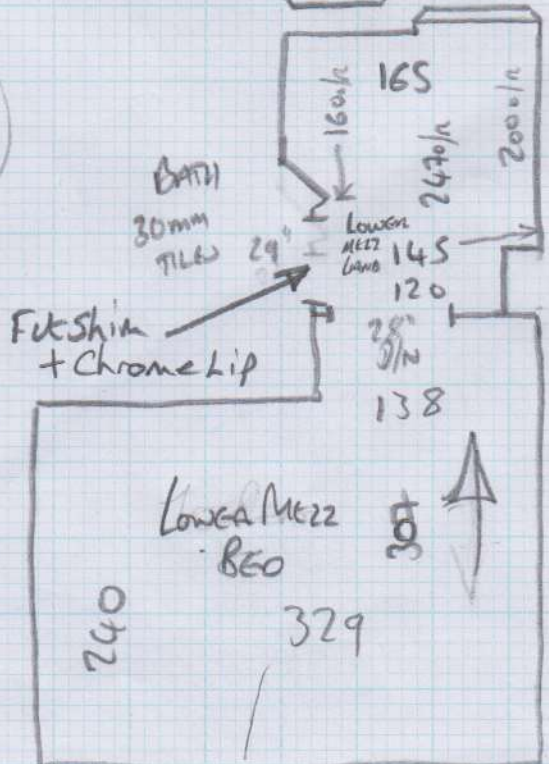 165
160 o/n
2470/n
200 o/n
BATH
30mm
TILED
29"
LOWER
MEZZ
LAND
145
120
28"
D/N
138
Fit Shim
+ Chrome Lip
LOWER MEZZ
BED
240
329